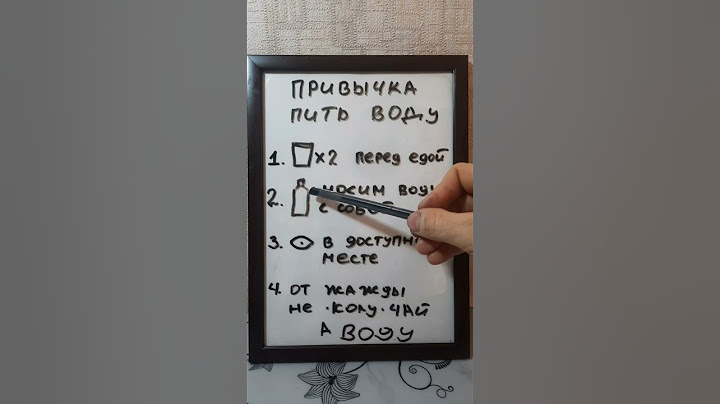 ПРИВЫЧКА
ПИТЬ ВОДУ
1. х2 перед едой
2. носим воду
с собой
3. в доступном
месте
4. от жажды
не · колу · чай
а воду